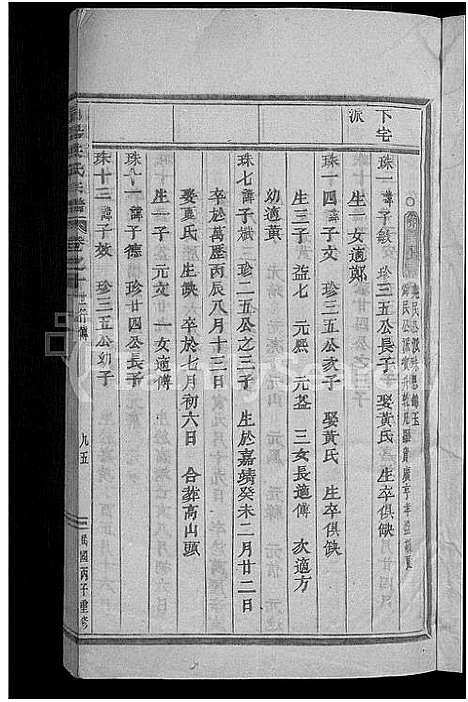 下宅
派
珠一 諱子敏 珍三五公長子 娶黃氏 生卒俱缺
生一女適鄭
珠一四 諱子文 珍三五公次子 娶黃氏 生卒俱缺
生三子 益七 元熙 元益 三女長適傅 次適方
幼適黃
珠七 諱子斌 珍二五公之三子 生於嘉靖癸未二月廿二日
卒於萬歷丙辰八月十三日
娶夏氏 生缺 卒於七月初六日 合葬高山頭
生一子 元文 一女適傅
珠九一 諱子德 珍廿四公長子
珠十三 諱子效 珍三五公幼子
氏宗譜 卷之十 世系傳
九五
民國丙子重修